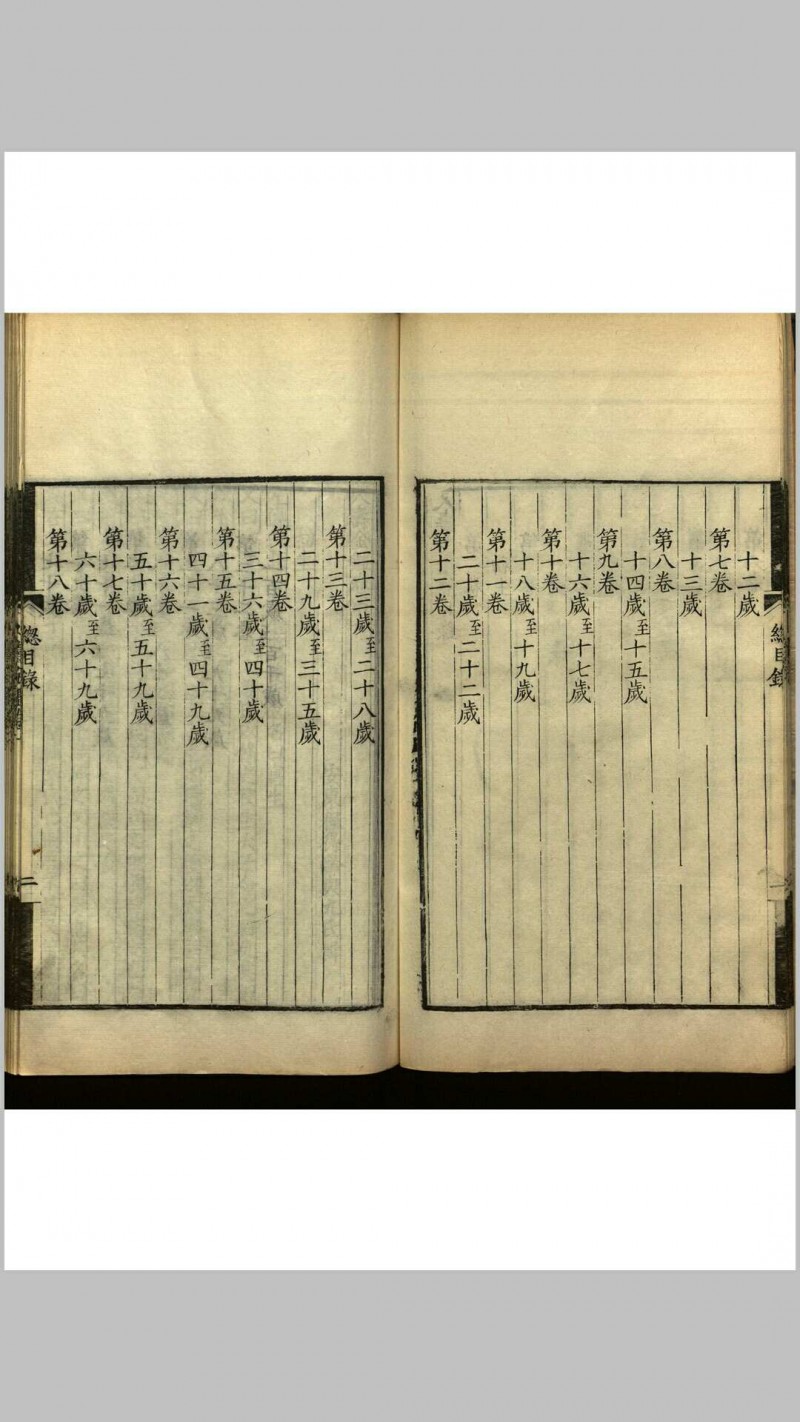 總目錄
一
十二歲
第七卷
十三歲
第八卷
十四歲至十五歲
第九卷
十六歲至十七歲
第十卷
十八歲至十九歲
第十一卷
二十歲至二十二歲
第十二卷
二十三歲至二十八歲
第十三卷
二十九歲至三十五歲
第十四卷
三十六歲至四十歲
第十五卷
四十一歲至四十九歲
第十六卷
五十歲至五十九歲
第十七卷
六十歲至六十九歲
第十八卷
總目錄
二